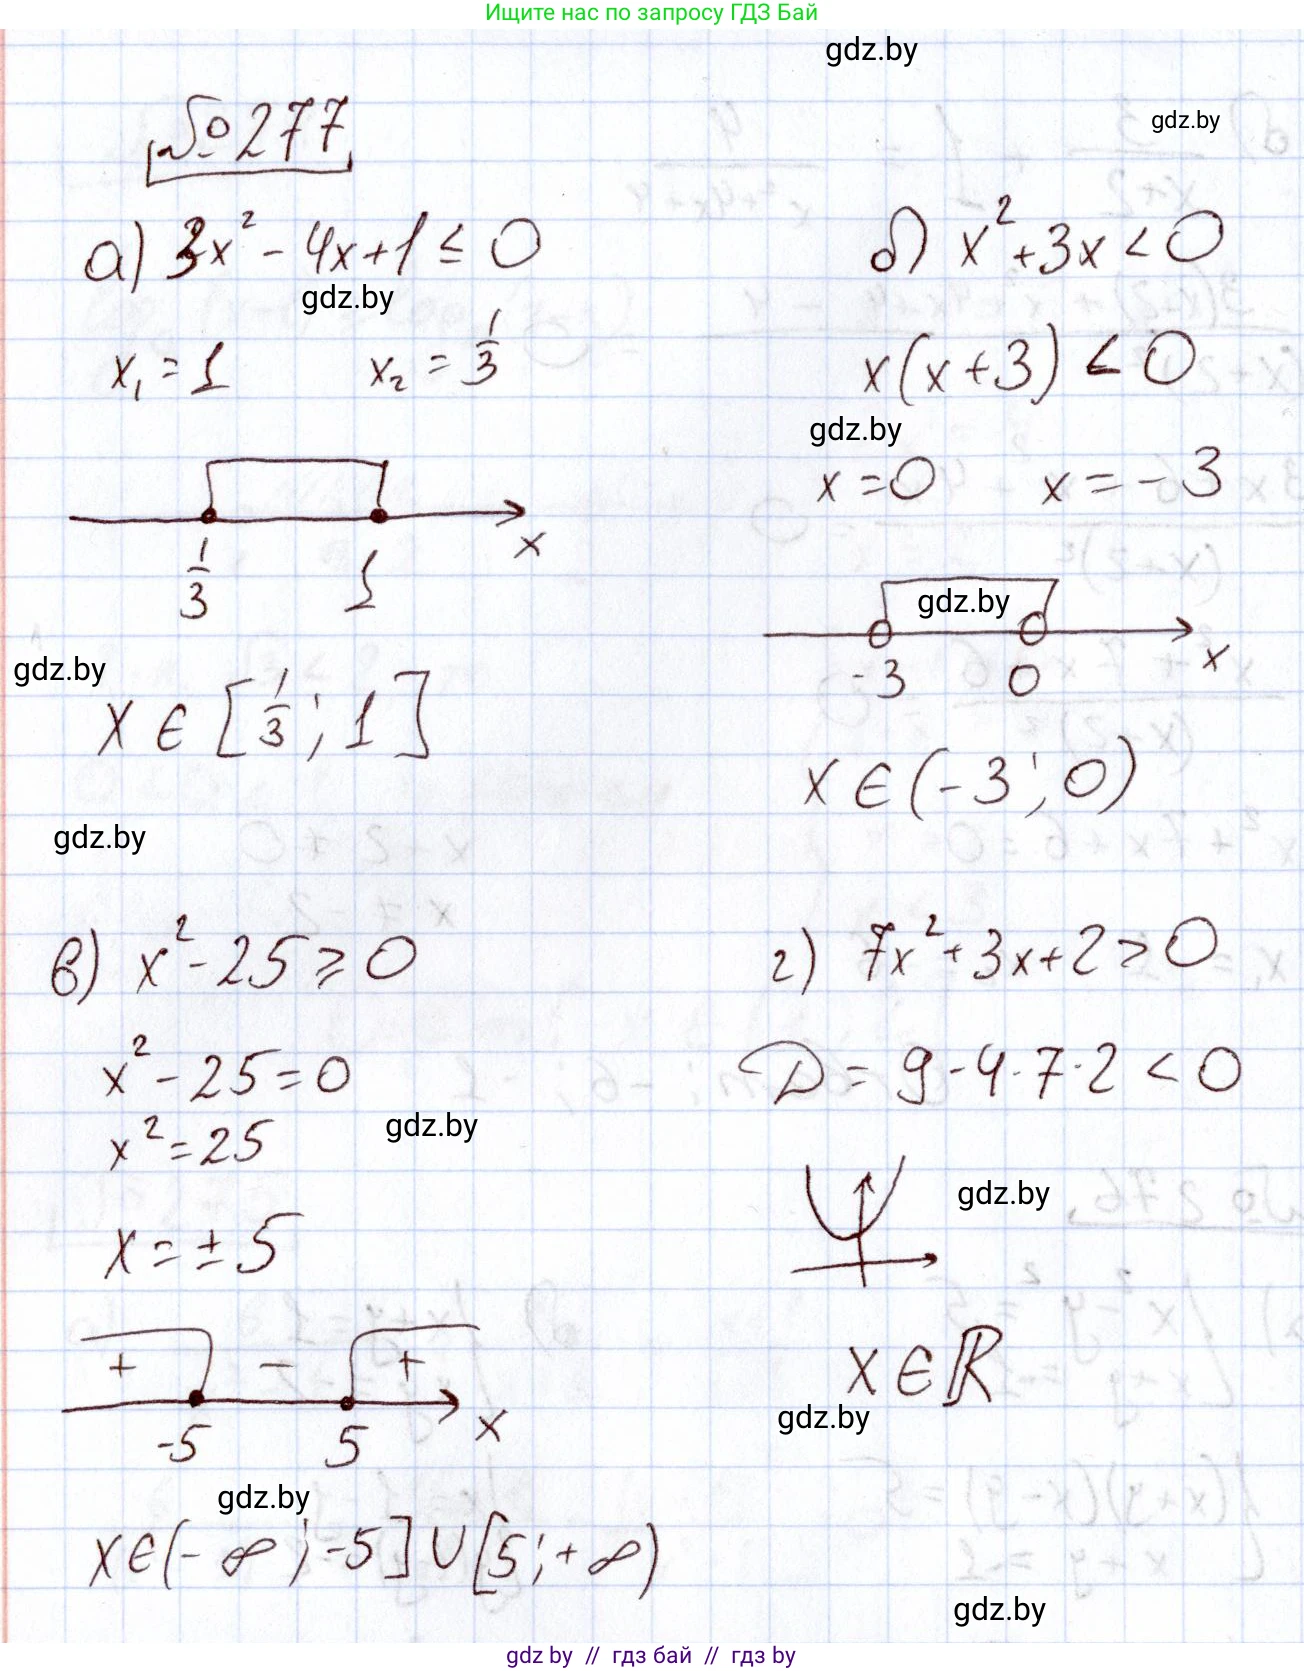 Ищите нас по запросу ГДЗ Бай
gdz.by
gdz.by
№ 277
а) 3x² - 4x + 1 ≤ 0
gdz.by
x₁ = 1 x₂ = 1/3
1/3 1 x
gdz.by
x ∈ [1/3; 1]
gdz.by
б) x² + 3x < 0
x(x + 3) < 0
gdz.by
x = 0 x = -3
gdz.by
-3 0 x
x ∈ (-3; 0)
в) x² - 25 ≥ 0
x² - 25 = 0
x² = 25
gdz.by
x = ± 5
+ - +
-5 5 x
gdz.by
x ∈ (-∞; -5] ∪ [5; +∞)
г) 7x² + 3x + 2 > 0
D = 9 - 4·7·2 < 0
gdz.by
x ∈ R
gdz.by
gdz.by
gdz.by // гдз бай // гдз by